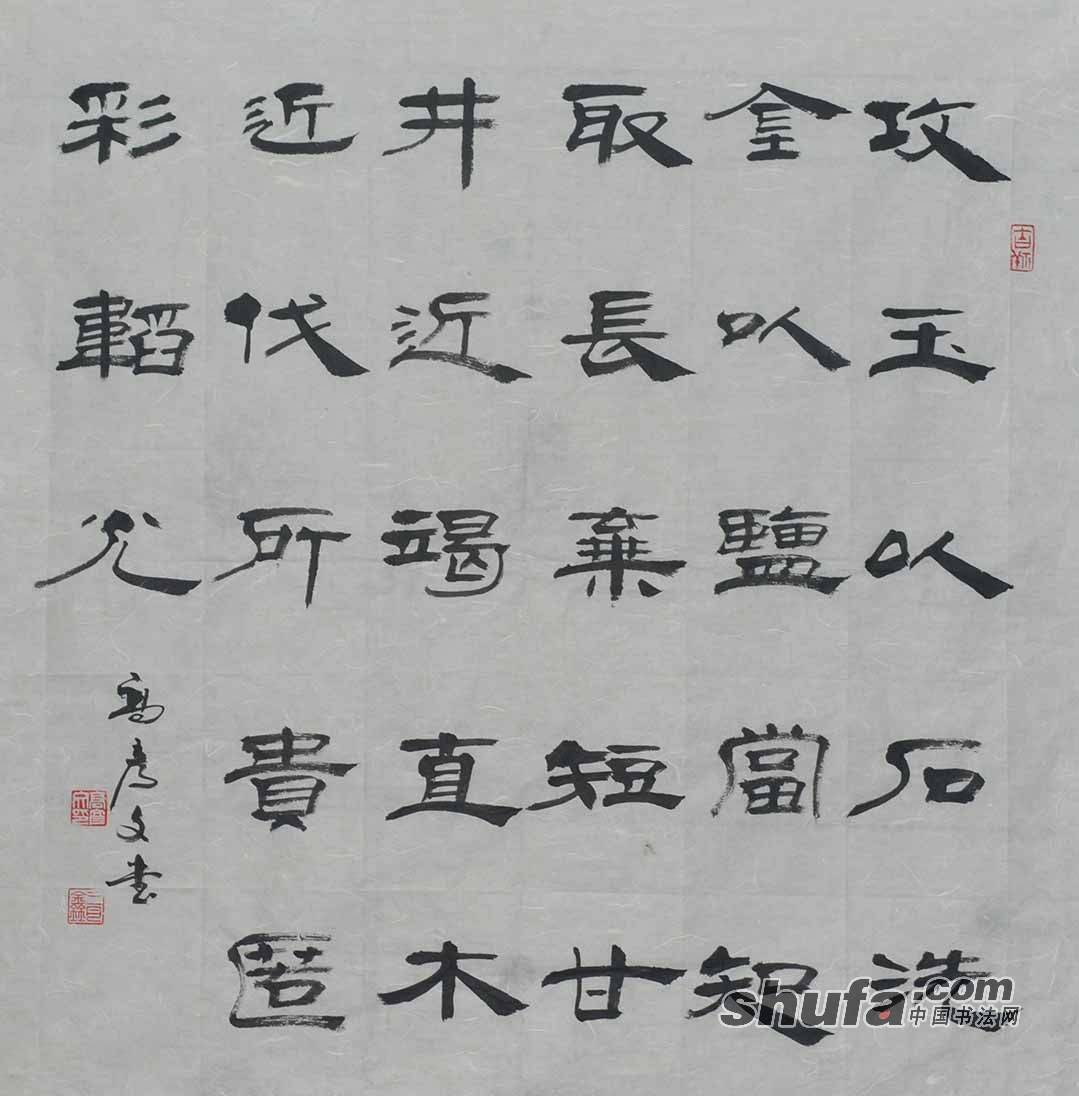 攻玉以石洗
金以鹽當知
取長棄短甘
井近竭直木
近伐所貴匿
彩韜光
高彥文书
吉祥
shufa.com
中国书法网